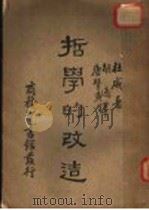 哲學的改造
杜威著
胡適
唐擘黃
商務印書館發行